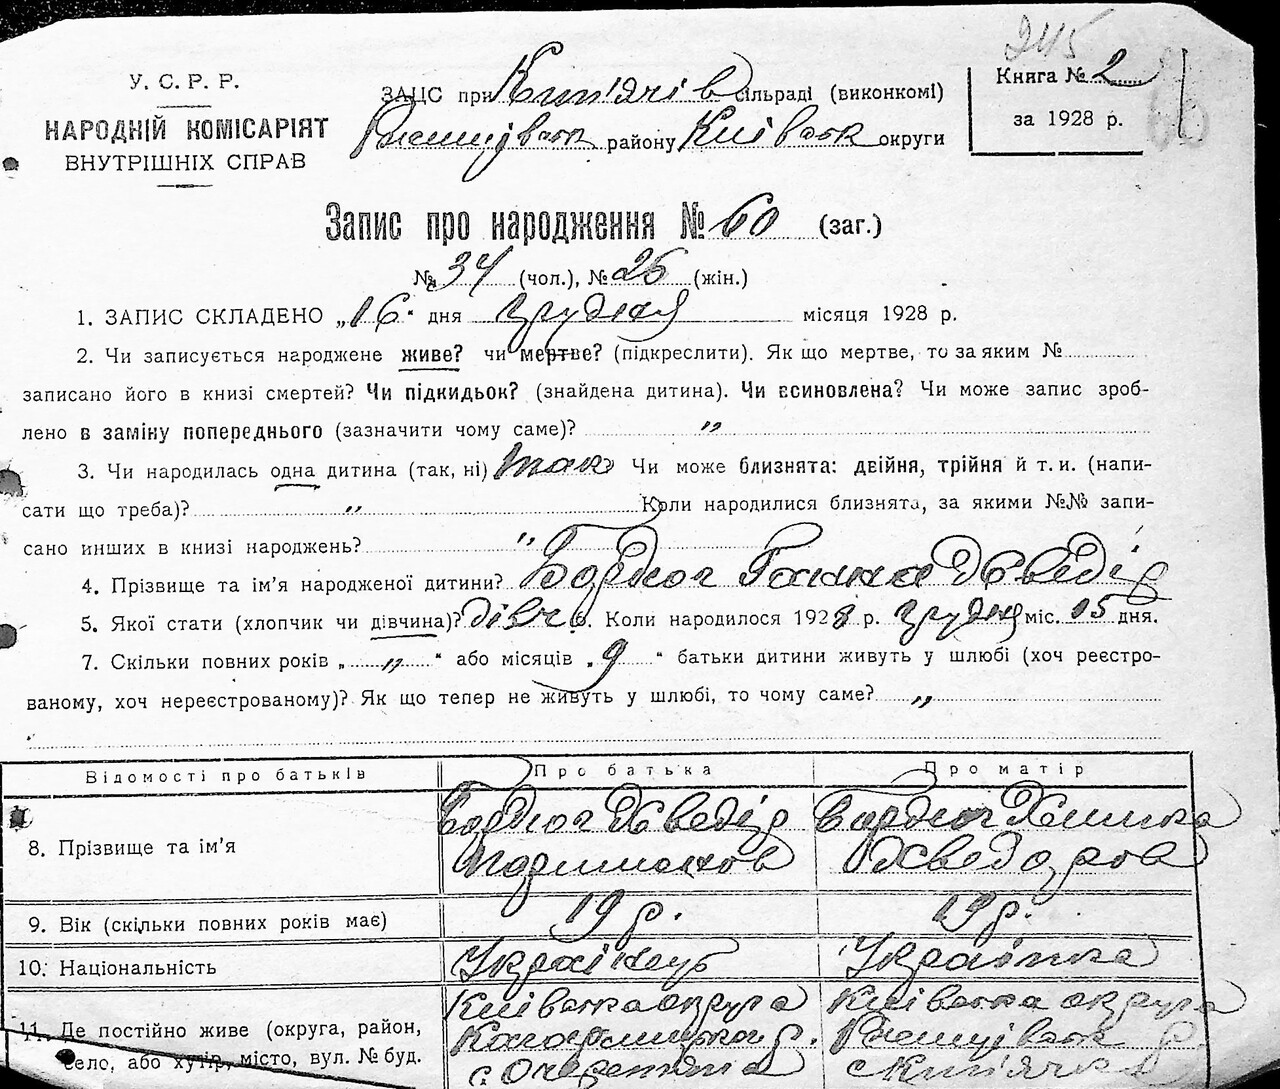 245
У. С. Р. Р.
НАРОДНІЙ КОМІСАРІЯТ
ВНУТРІШНІХ СПРАВ
ЗАЦС при Кип'ячів сільраді (виконкомі)
району Київськ округи
Книга № 2
за 1928 р.
Запис про народження № 60 (заг.)
№ 34 (чол.), № 26 (жін.)
1. ЗАПИС СКЛАДЕНО „16“ дня грудня місяця 1928 р.
2. Чи записується народжене живе? чи мертве? (підкреслити). Як що мертве, то за яким №
записано його в книзі смертей? Чи підкидьок? (знайдена дитина). Чи всиновлена? Чи може запис зроб-
лено в заміну попереднього (зазначити чому саме)? "
3. Чи народилась одна дитина (так, ні) так Чи може близнята: двійня, трійня й т. и. (напи-
сати що треба)? " Коли народилися близнята, за якими №№ запи-
сано инших в книзі народжень? "
4. Прізвище та ім'я народженої дитини? Бардюг Ганна Хведір
5. Якої стати (хлопчик чи дівчина)? дівч. Коли народилося 1928 р. грудня міс. 15 дня.
7. Скільки повних років „ " “ або місяців „ 9 “ батьки дитини живуть у шлюбі (хоч реєстро-
ваному, хоч нереєстрованому)? Як що тепер не живуть у шлюбі, то чому саме? "
Відомості про батьків Про батька Про матір
8. Прізвище та ім'я Бардюг Хведір Бардюг
Хведоров
9. Вік (скільки повних років має) 19 р. 19 р.
10. Національність Українець Українка
11. Де постійно живе (округа, район, Київська округа Київська округа
село, або хутір, місто, вул. № буд. с. Очеретяна с. Кип'ячка